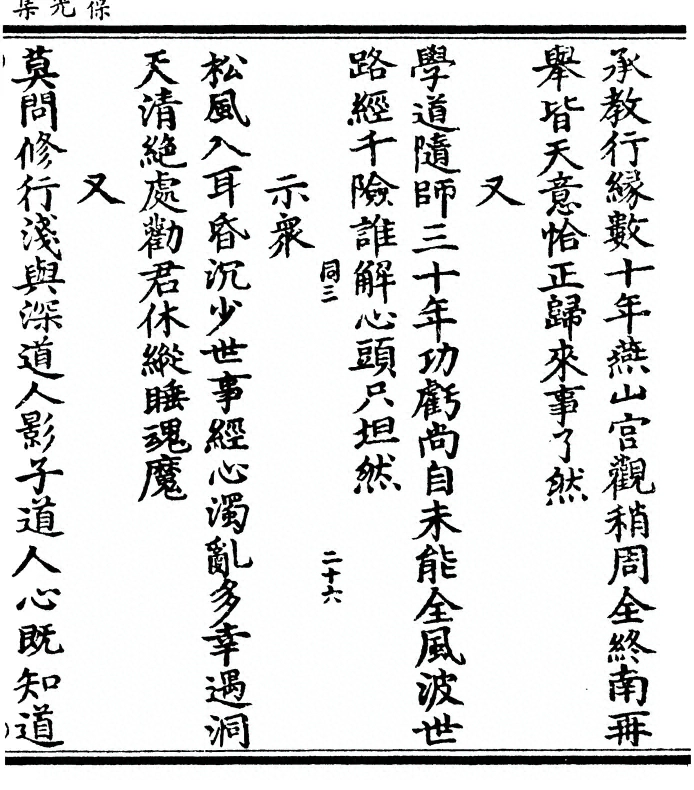 葆光集
承教行緣數十年燕山宮觀稍周全終南再
舉皆天意恰正歸來事了然
又
學道隨師三十年功虧尚自未能全風波世
路經千險誰解心頭只坦然
同三
二十六
示衆
松風入耳昏沉少世事經心濁亂多幸遇洞
天清絕處勸君休縱睡魂魔
又
莫問修行淺與深道人影子道人心既知道